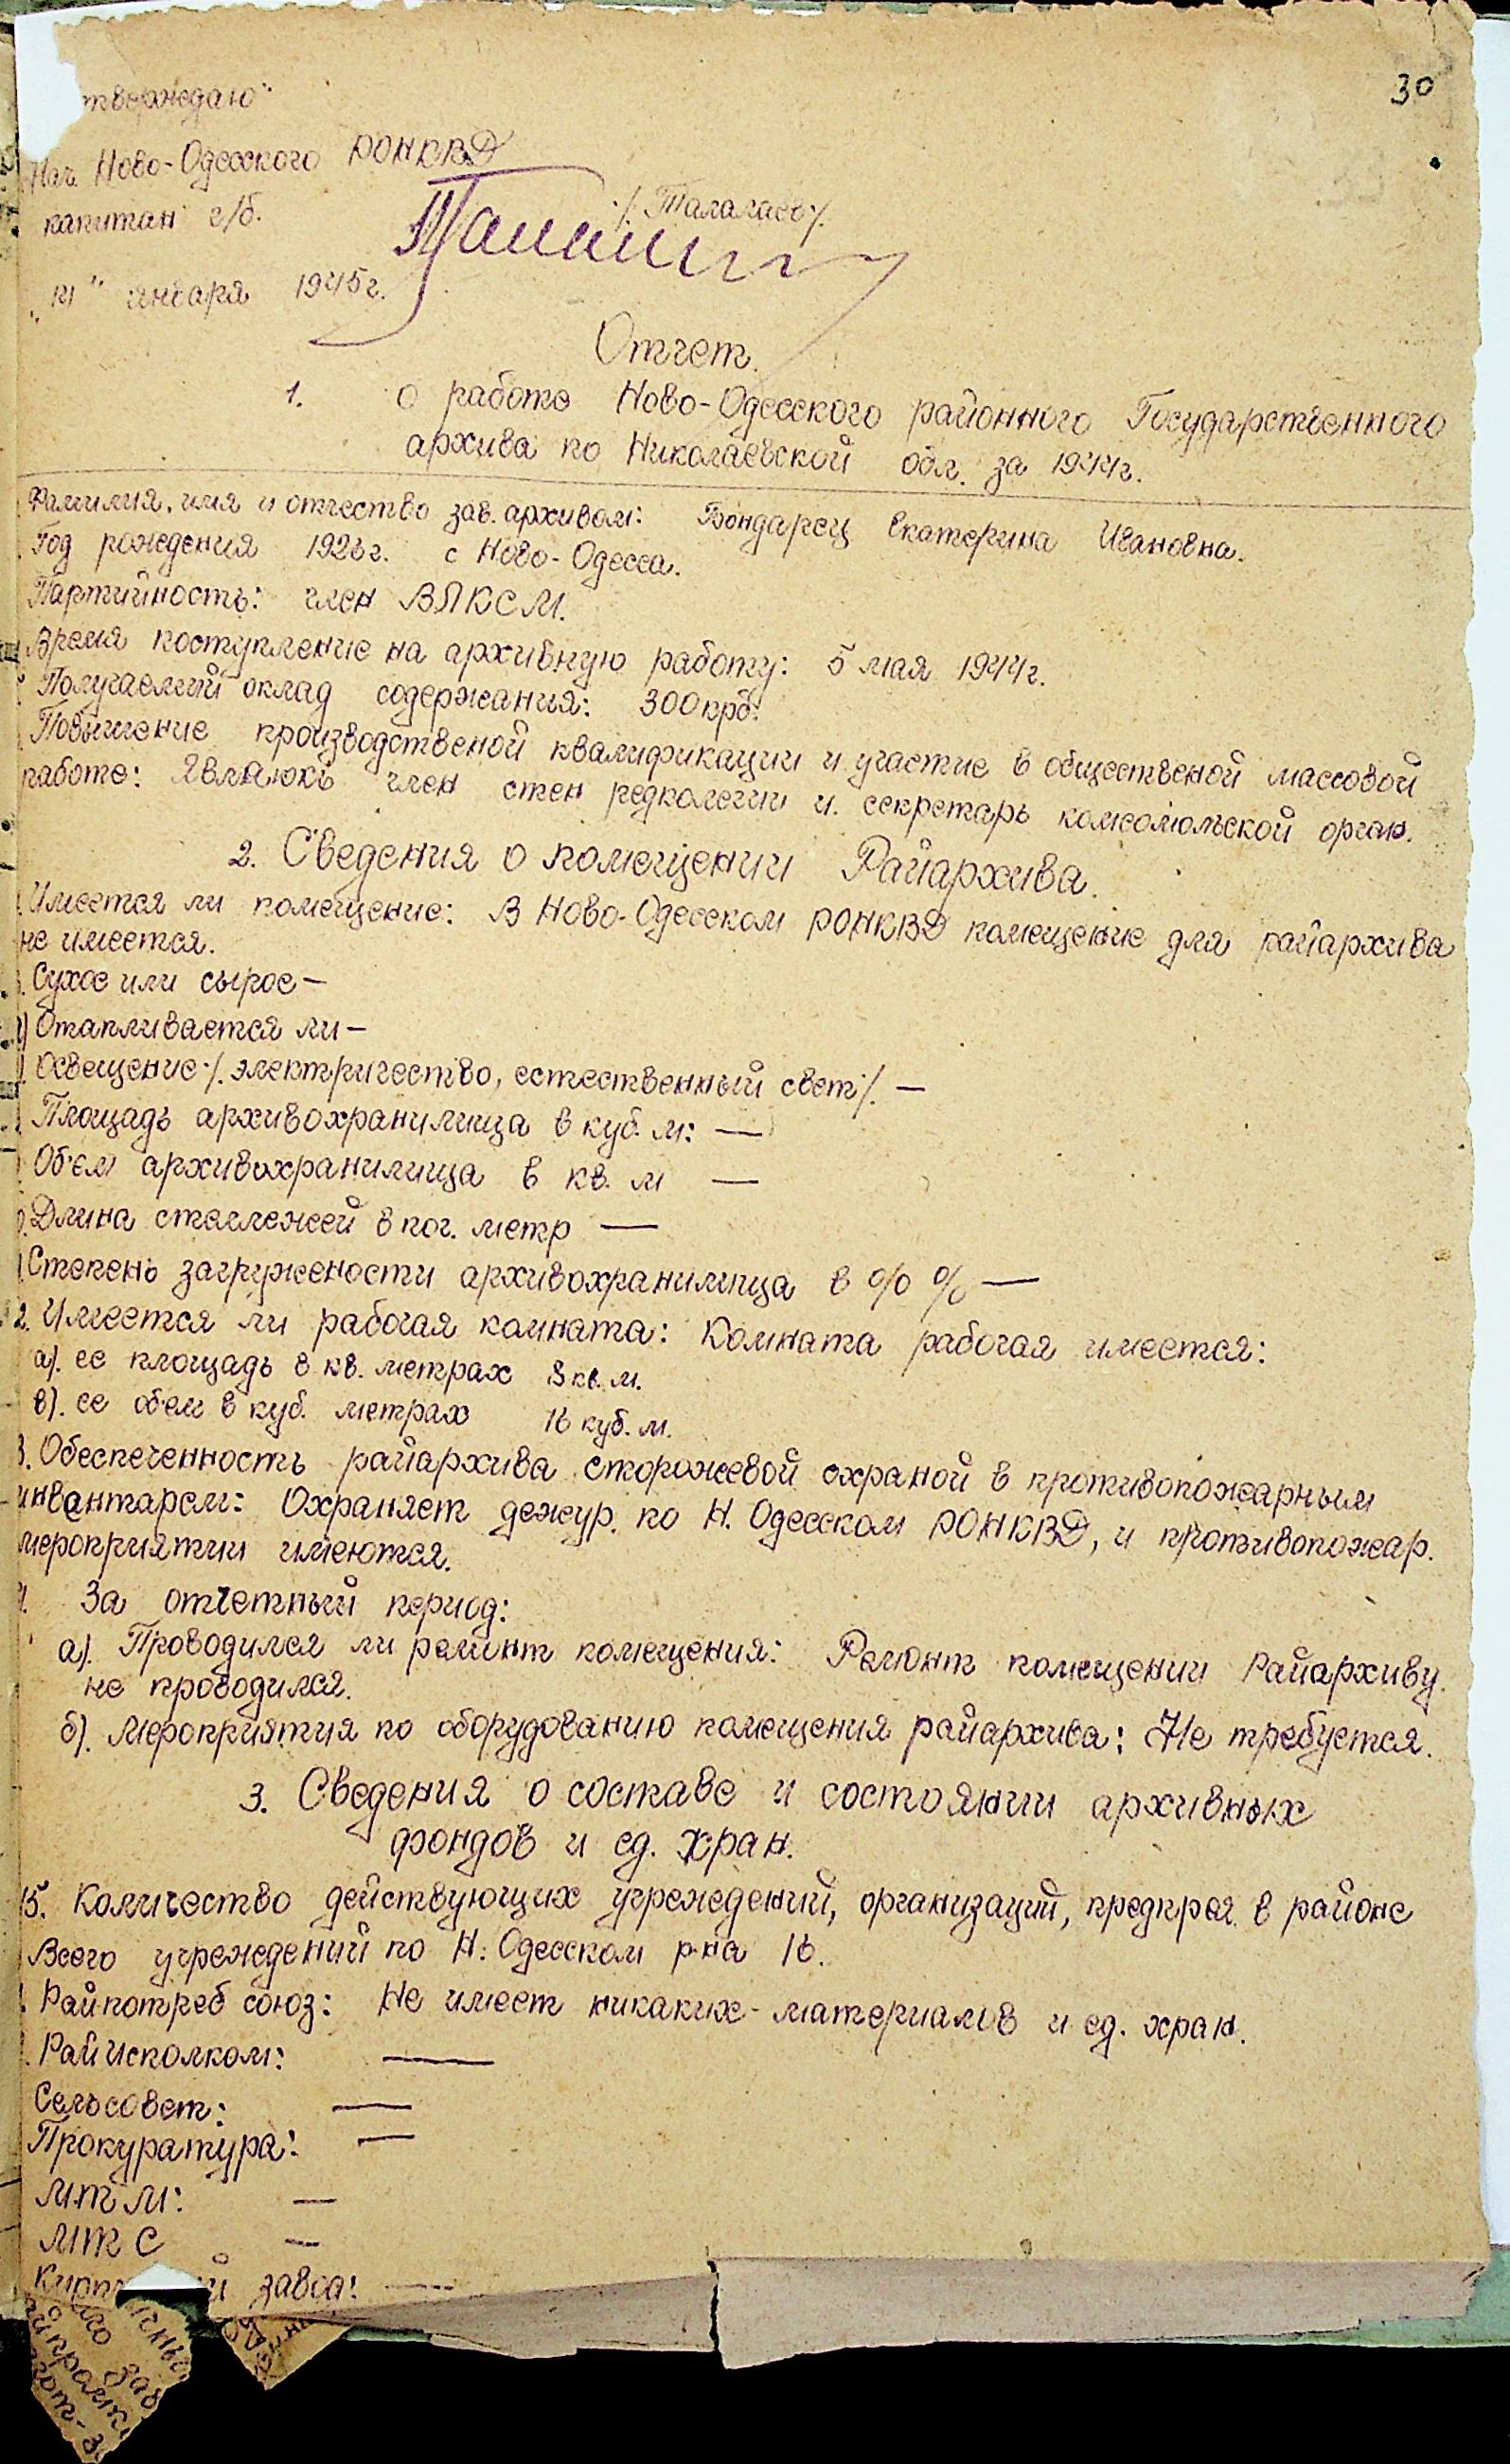 30
тверждаю"
Нач. Ново-Одесского РОНКВД
капитан г/б. ·/. Талалаев·/.
" января 1945 г.
Отчет.
1. о работе Ново-Одесского районного Государственного
архива по Николаевской обл. за 1944г.
Фамилия, имя и отчество зав. архивом: Бондарец Екатерина Ивановна.
Год рождения 1923г. с Ново-Одесса.
Партийность: член ВЛКСМ.
Время поступление на архивную работу: 5 мая 1944г.
Получаемий оклад содержания: 300крб.
Повышение производственой квалификации и участие в общественой массовой
работе: Являюкь член стен редколегии и. секретарь комсомольской орган.
2. Сведения о помещении Райархива.
Имеется ли помещение: В Ново-Одесском РОНКВД помещение для райархива
не имеется.
Сухое или сырое —
Отапливается ли —
Освещение·/. электричество, естественный свет·/. —
Площадь архивохранилища в куб. м: —
Об'ем архивохранилища в кв. м —
Длина стеллежей в пог. метр —
Степень загружености архивохранилища в % % —
2. Имеется ли рабочая комната: Комната рабочая имеется:
а). ее площадь в кв. метрах 8 кв. м.
в). ее обем в куб. метрах 16 куб. м.
3. Обеспеченность райархива сторожевой охраной в противопожарным
инвантарем: Охраняет дежур. по Н. Одесском РОНКВД, и противопожар.
мероприятии имеются.
4. За отчетный период:
а). Проводился ли ремонт помещения: Ремонт помещении Райархиву.
не проводился.
б). Мероприятия по оборудованию помещения райархива: Не требуется.
3. Сведения о составе и состоянии архивных
фондов и ед. хран.
15. Количество действующих учреждений, организаций, предприя. в районе
Всего учреждений по Н. Одесском р-на 16.
Райпотреб союз: Не имеет никаких - материалов и ед. хран.
Райисполком: —
Сельсовет: —
Прокуратура: —
МТМ: —
МТС —
завод: —